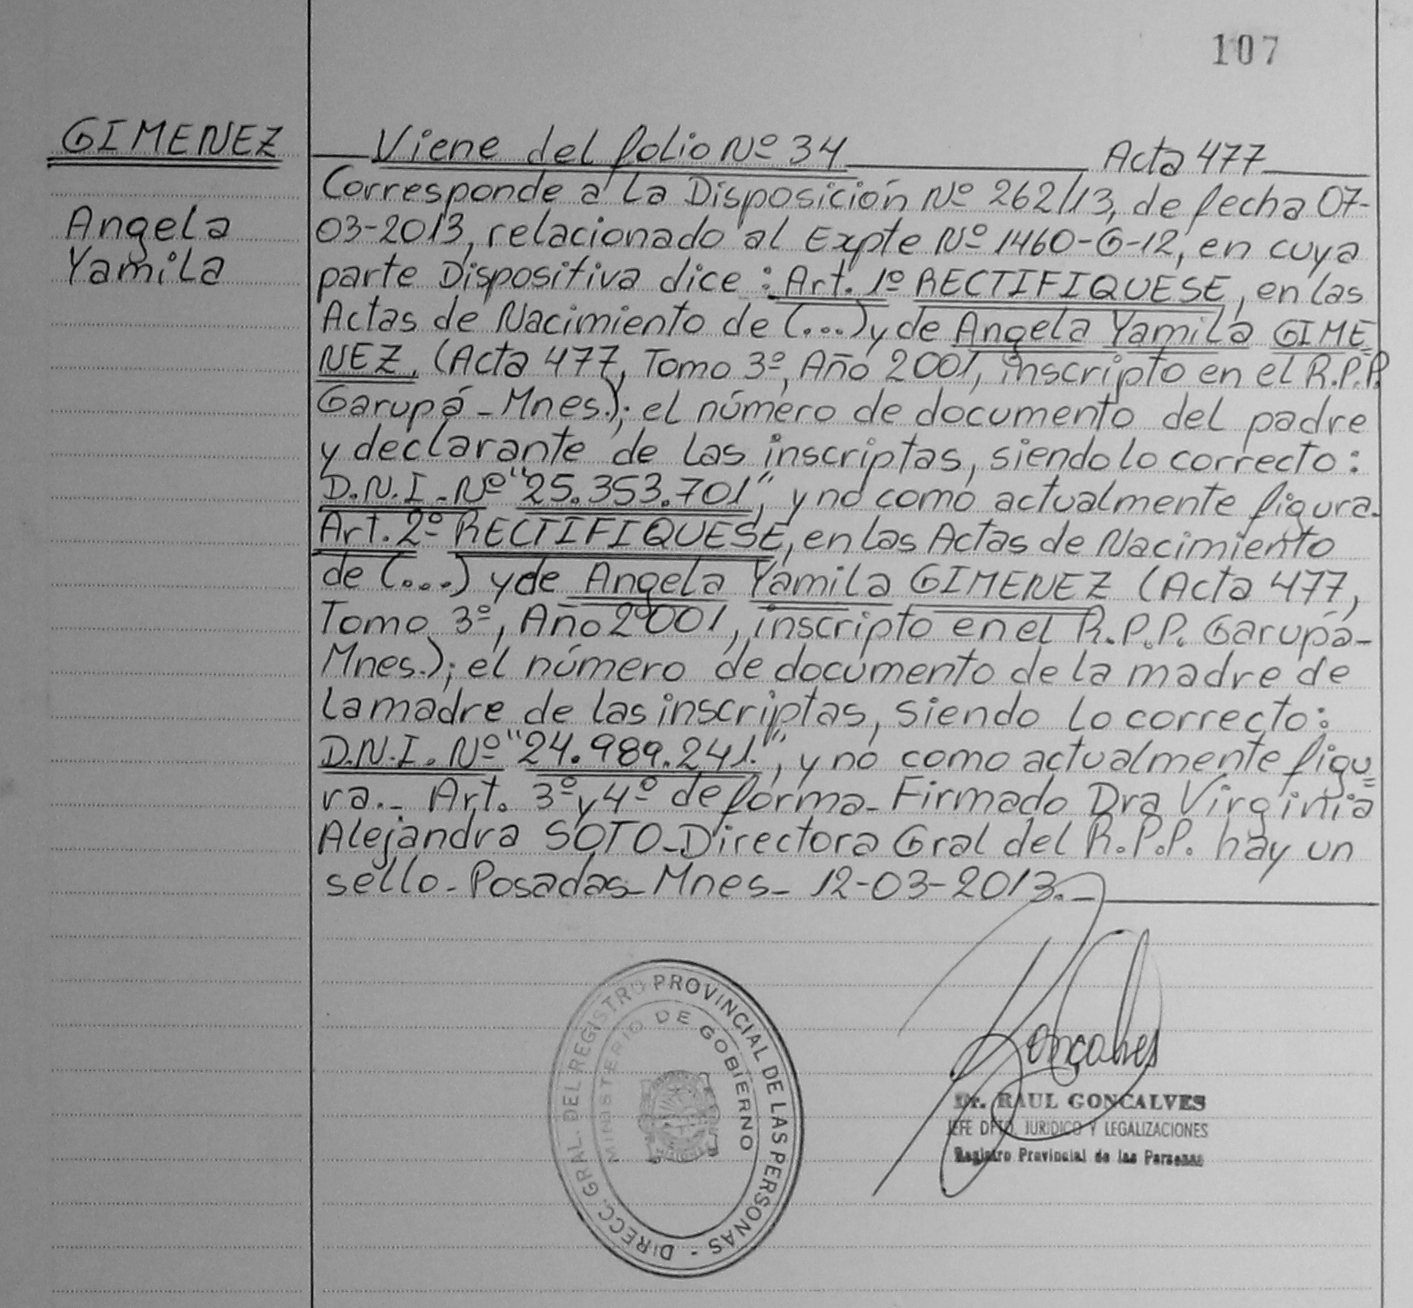 107
GIMENEZ
Angela
Yamila
Viene del folio Nº 34 Acta 477
Corresponde a La Disposición Nº 262/13, de fecha 07-
03-2013, relacionado al Expte Nº 1460-G-12, en cuya
parte Dispositiva dice: Art. 1º RECTIFIQUESE, en las
Actas de Nacimiento de (...) y de Angela Yamila GIME
NEZ, (Acta 477, Tomo 3º, Año 2001, inscripto en el R.P.P.
Garupá-Mnes.); el número de documento del padre
y declarante de las inscriptas, siendo lo correcto:
D.N.I. Nº "25.353.701", y no como actualmente figura.
Art. 2º RECTIFIQUESE, en las Actas de Nacimiento
de (...) y de Angela Yamila GIMENEZ (Acta 477,
Tomo 3º, Año 2001, inscripto en el R.P.P. Garupá-
Mnes.); el número de documento de la madre de
la madre de las inscriptas, siendo lo correcto:
D.N.I. Nº "24.989.241.", y no como actualmente figu=
ra.- Art. 3º y 4º de forma- Firmado Dra Virginia
Alejandra SOTO-Directora Gral del R.P.P. hay un
sello- Posadas-Mnes- 12-03-2013.-
DIRECC. GRAL. DEL REGISTRO PROVINCIAL DE LAS PERSONAS -
MINISTERIO DE GOBIERNO
Goncalves
Dr. RAUL GONCALVES
JEFE DPTO. JURIDICO Y LEGALIZACIONES
Registro Provincial de las Personas